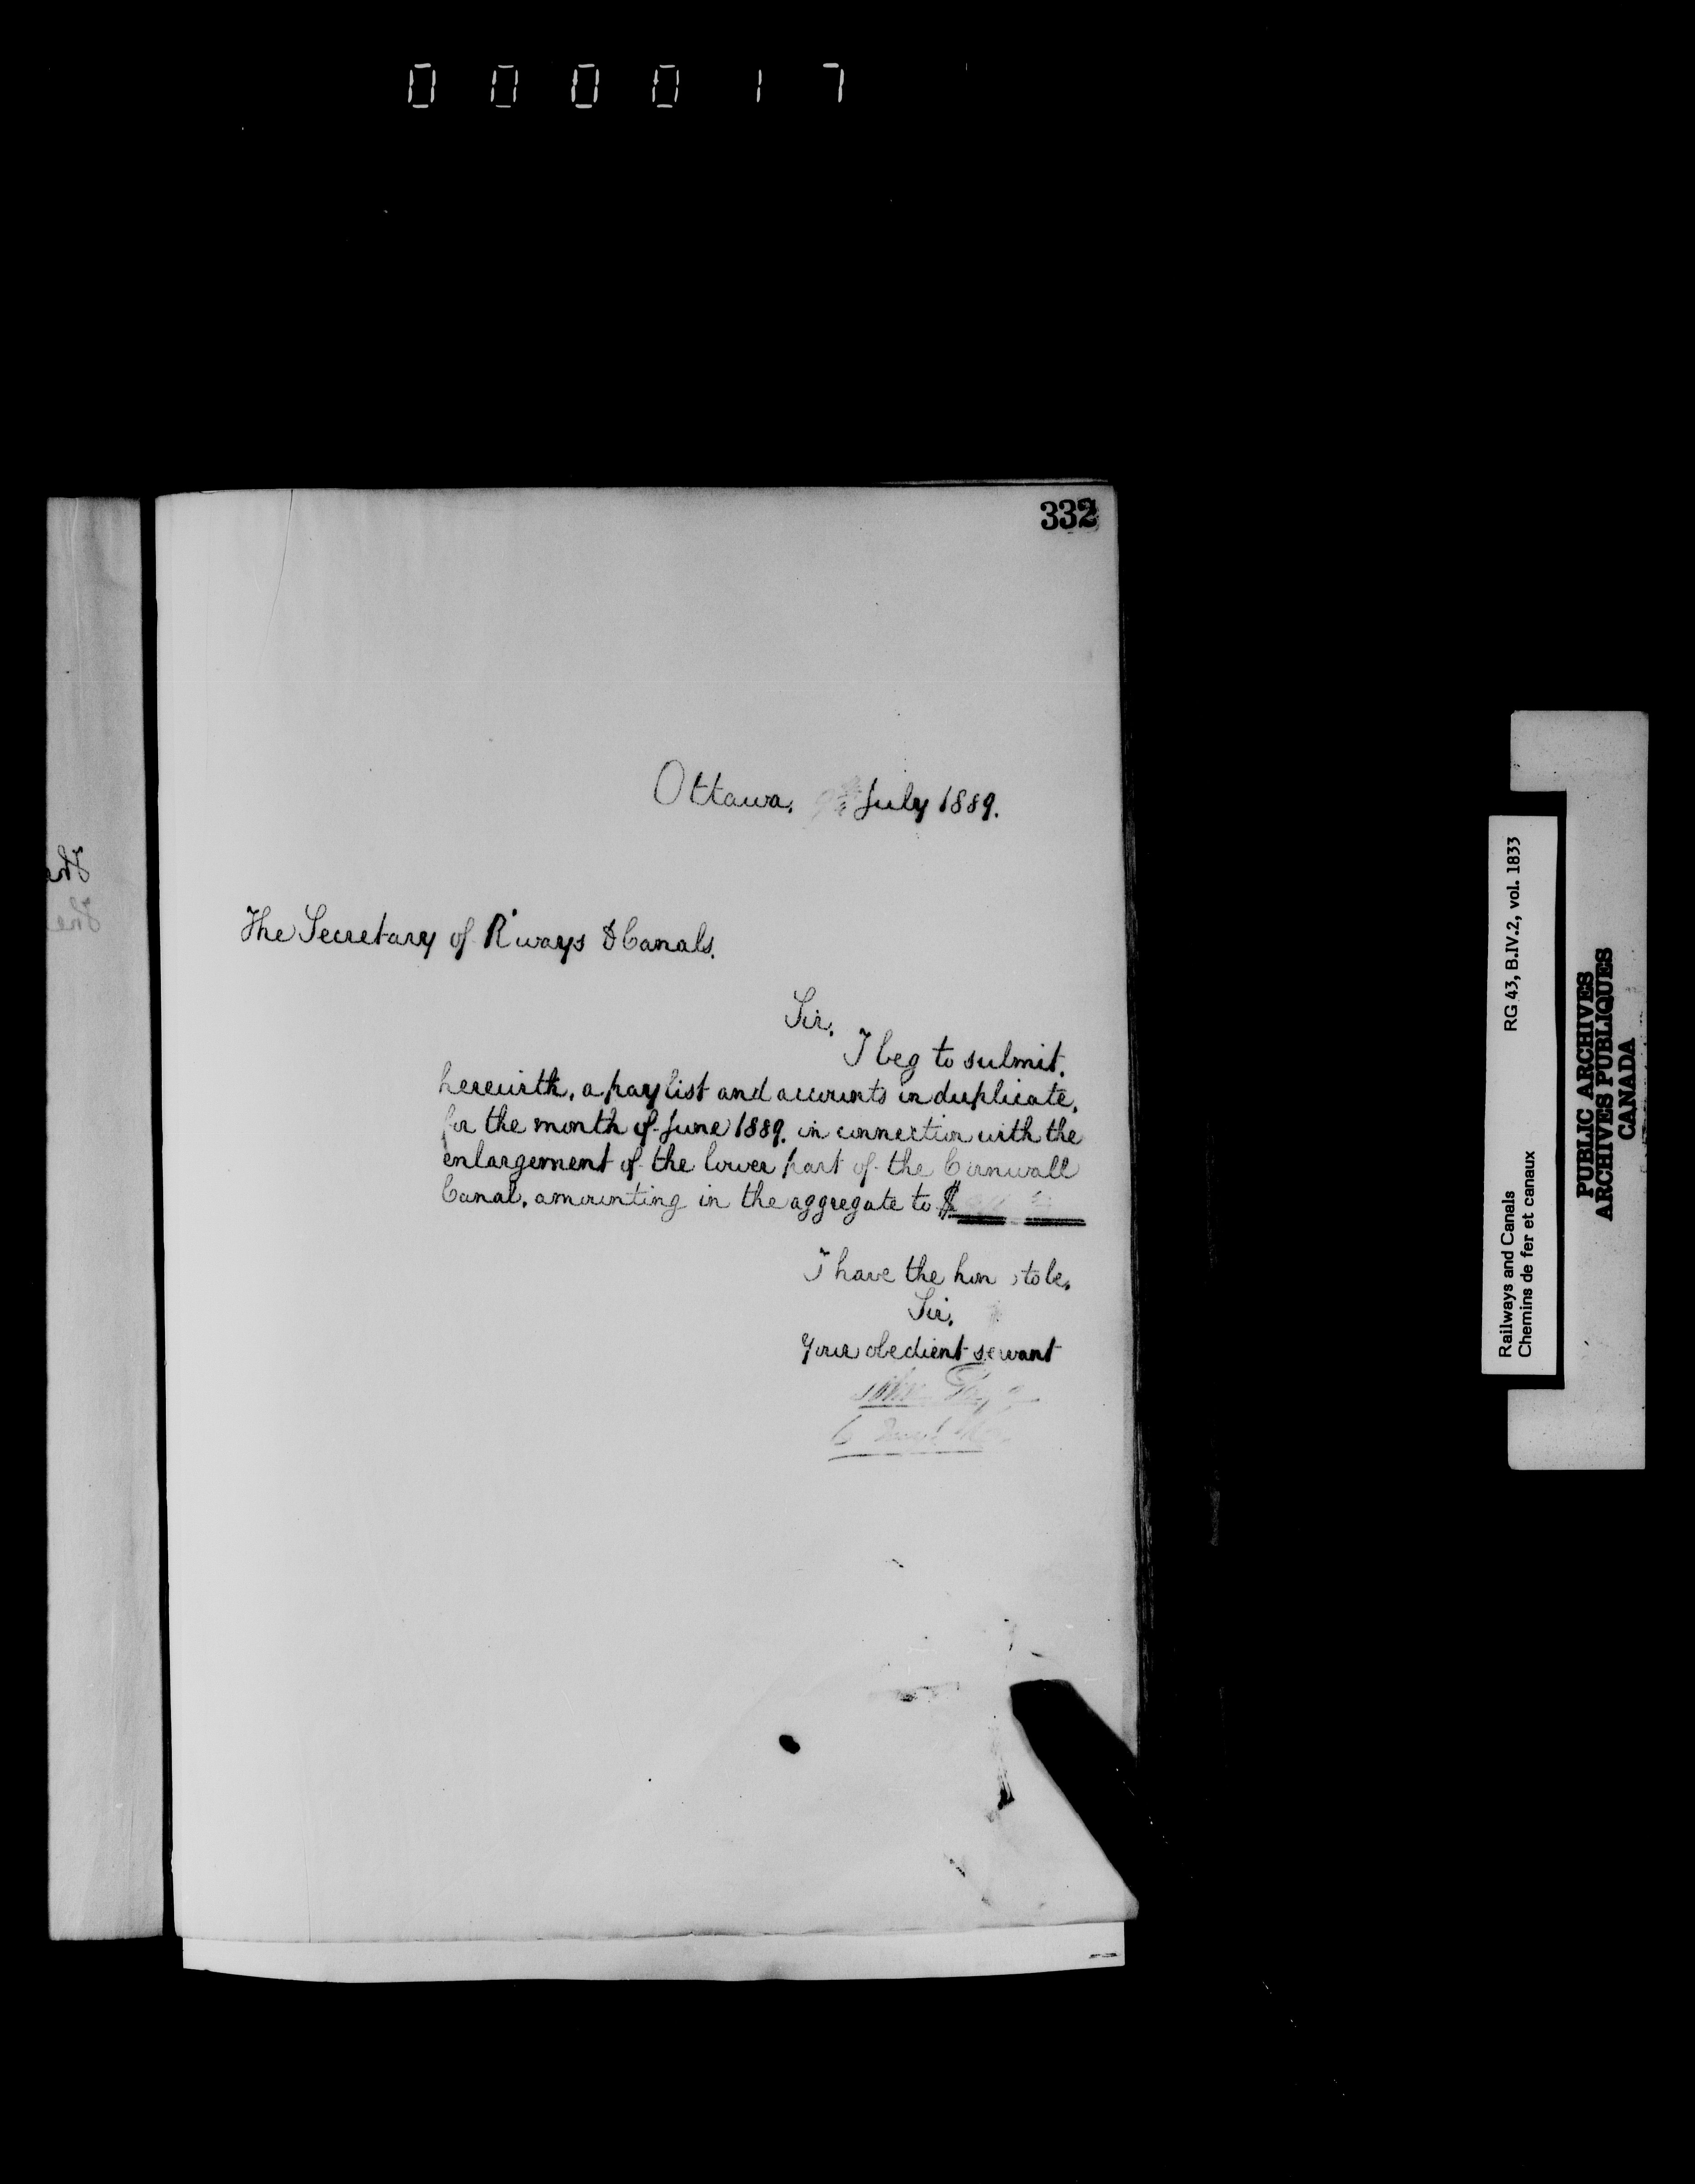 000017
332
Ottawa, 9th July 1889.
The Secretary of R'ways & Canals.
Sir,
I beg to submit,
herewith, a pay list and accounts in duplicate,
for the month of June 1889, in connection with the
enlargement of the lower part of the Cornwall
Canal, amounting in the aggregate to $
I have the hon to be,
Sir,
Your obedient servant
John Page
The
The
Railways and Canals RG 43, B.IV.2, vol. 1833
Chemins de fer et canaux
PUBLIC ARCHIVES
ARCHIVES PUBLIQUES
CANADA